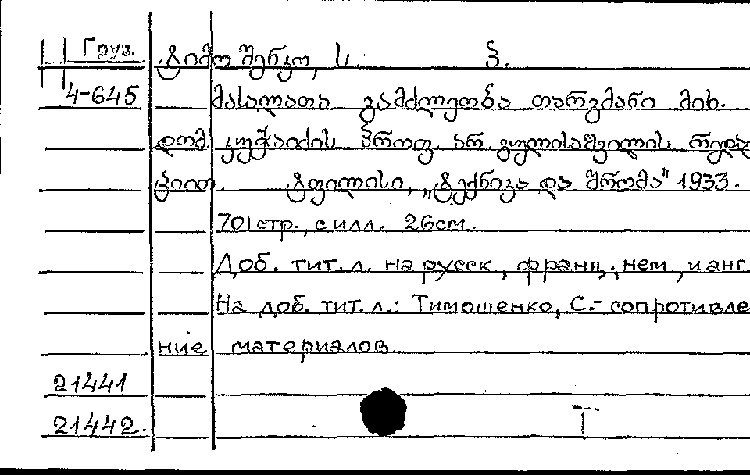 Груз. ტიმოშენკო, ს. პ.
4-645 მასალათა გამძლეობა თარგმანი მიხ.
დომ. კუჭაიძის პროფ. არ. გულისაშვილის რედა
ციით ტფილისი, „ტექნიკა და შრომა" 1933.
701 стр., с илл. 26см.
Доб. тит. л. на русск., франц., нем., и анг
На доб. тит. л.: Тимошенко, С.- сопротивле
ние материалов
21441
21442. Т